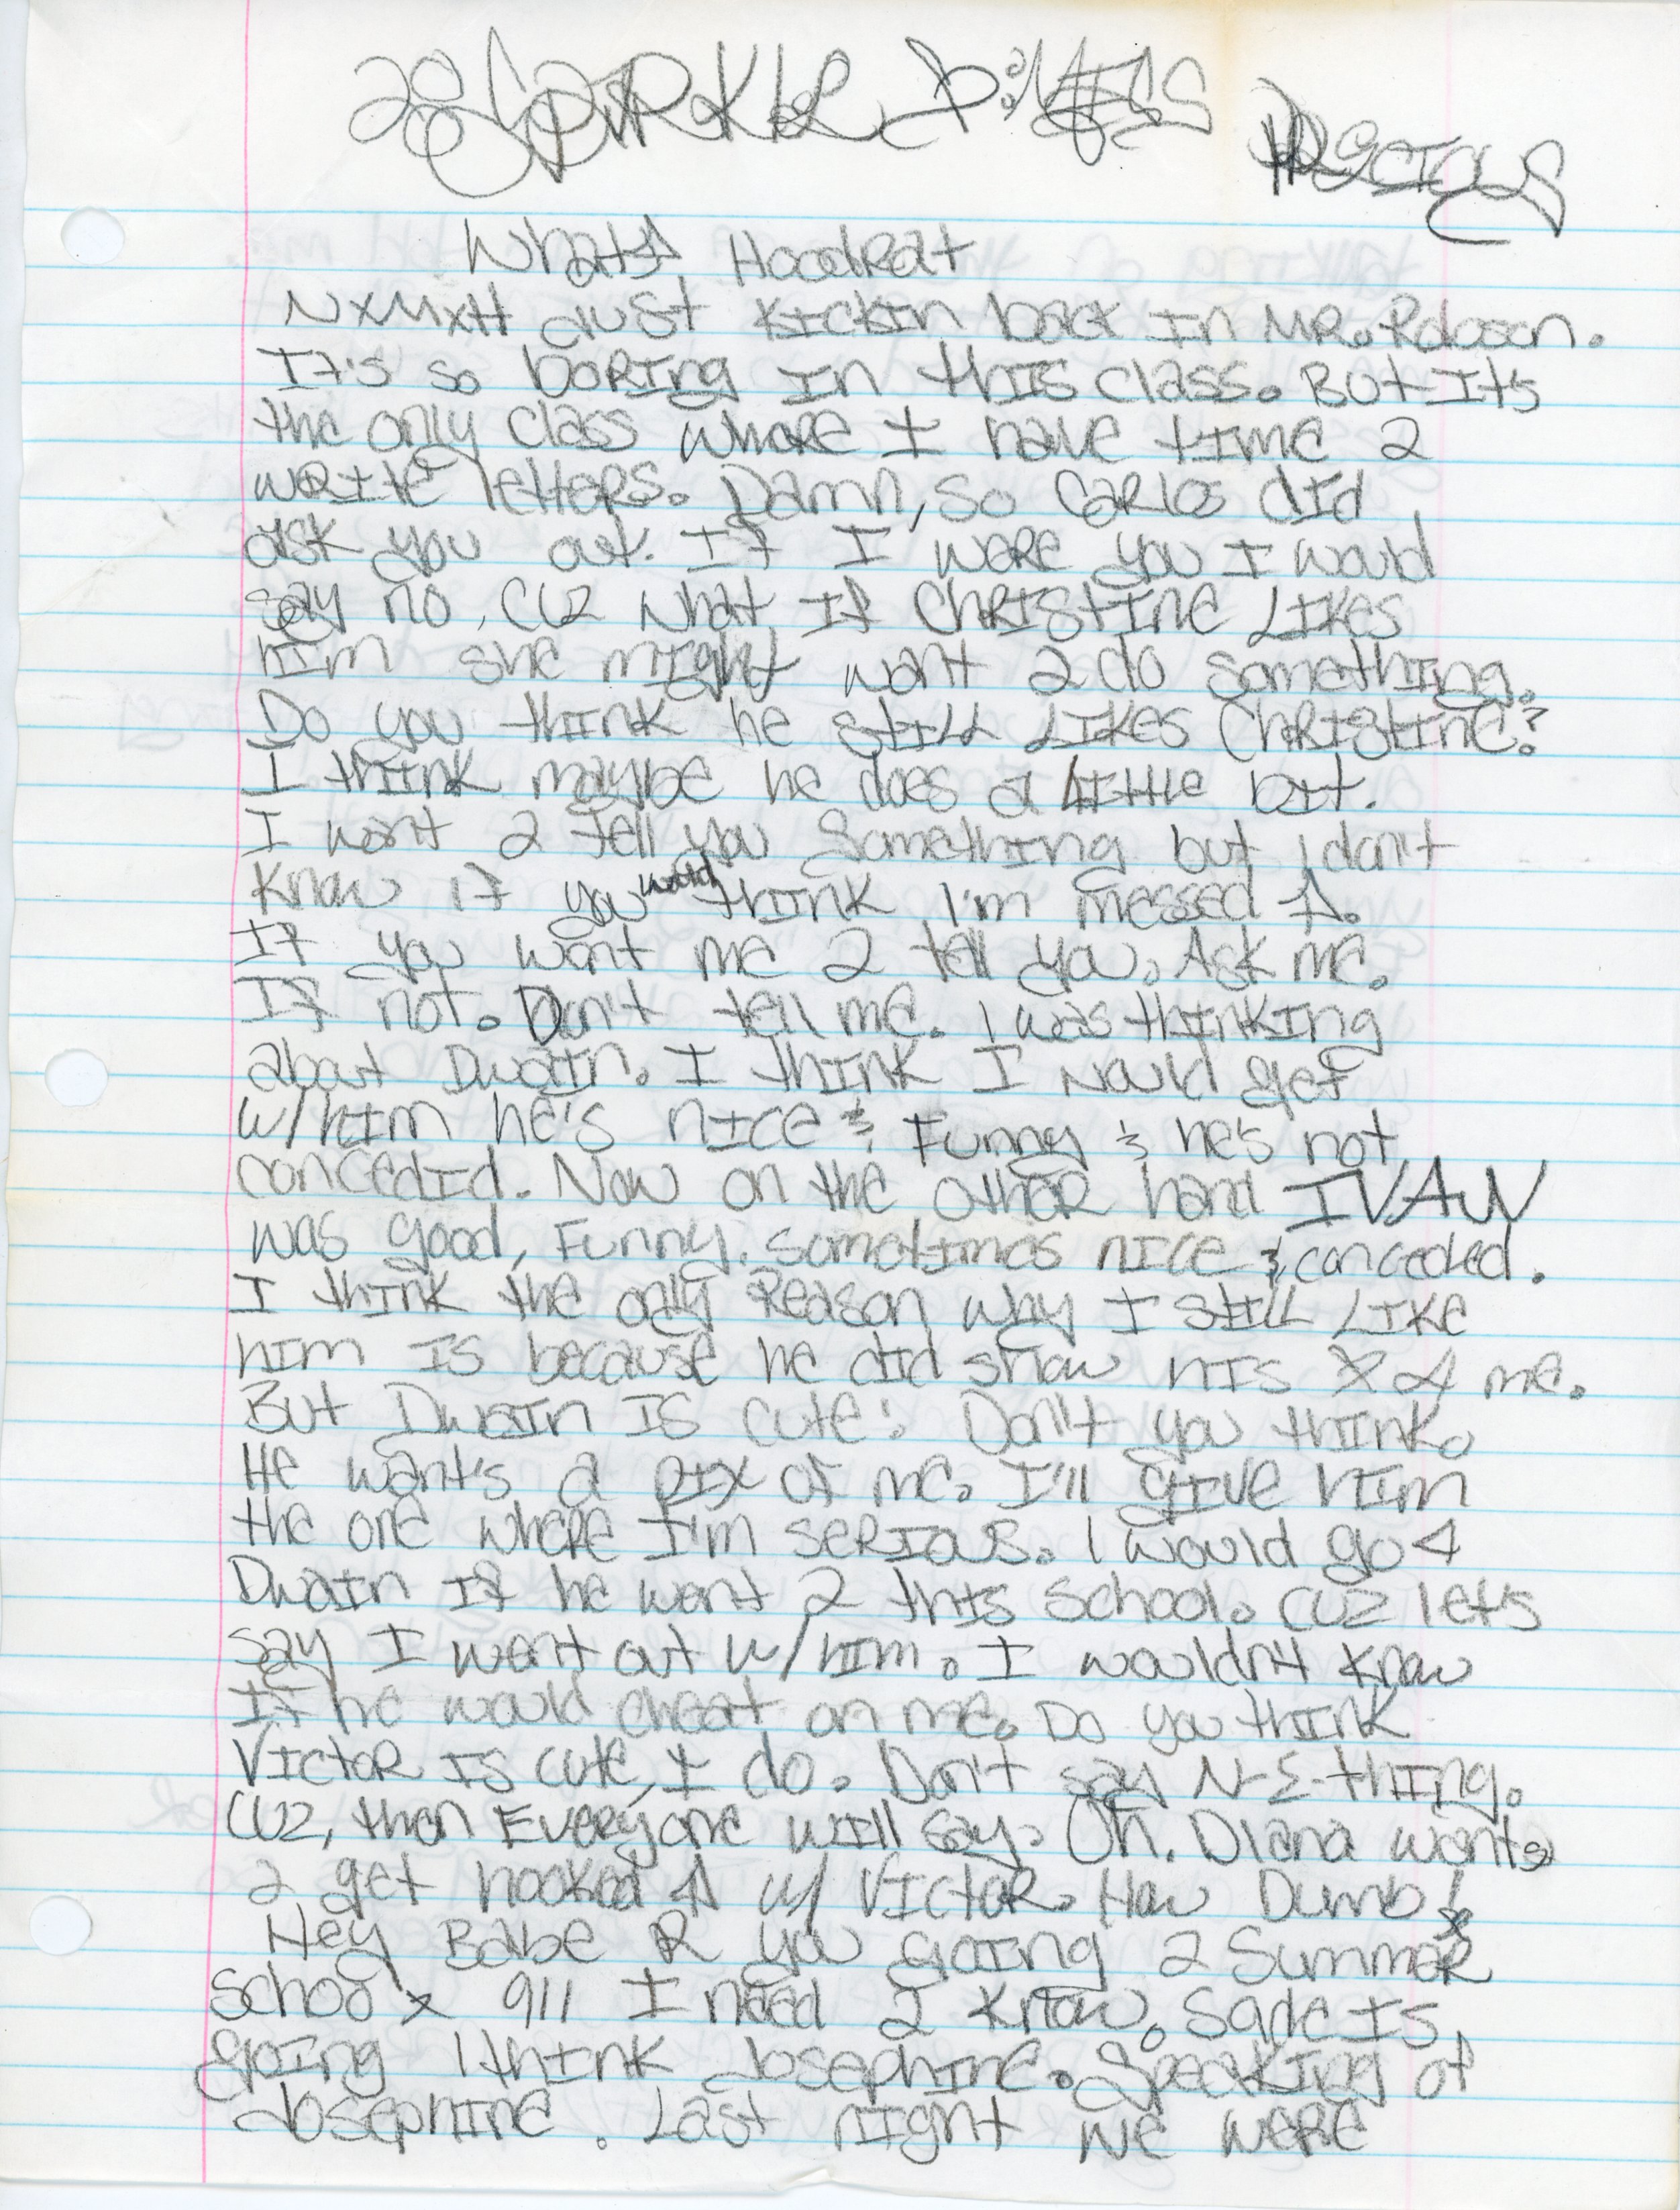 2 SPARKLE DiMES PRECIOUS
Whats ↑ HoodRat
NxMxH Just Kickin back In MR. Robson.
It's so boRIng In thIs class. But It's
the only class wheRe I have tIme 2
wRIte letteRs. Damn, so CaRlos dId
ask you out. If I weRe you I would
say no, CUZ what If ChRIstIne LIkes
hIm she mIght want 2 do somethIng.
Do you thInk he stILL LIkes ChRIstIne?
I thInk maybe he does a lIttle bIt.
I want 2 tell you SomethIng but I don't
know If you would thInk I'm messed ↑.
If you want me 2 tell you. Ask me.
If not. Don't tell me. I was thInkIng
about DwaIn. I thInk I would get
w/hIm he's nIce & Funny & he's not
concedId. Now on the otheR hand IVAN
was good, Funny, sometImes nIce & conceded.
I thInk the only Reason why I stILL LIke
hIm Is because he dId show hIs X 4 me.
But DwaIn Is cute! Don't you thInk.
He want's a pIx of me. I'll gIve hIm
the one wheRe I'm seRIous. I would go 4
DwaIn If he went 2 thIs school. CUZ let's
say I went out w/hIm. I wouldn't know
If he would cheat on me. Do you thInk
VIctoR Is cute, I do. Don't say N-E-thIng.
CUZ, then EveRyone wIll say. Oh. DIana wants
2 get hooked ↑ w/ VIctoR. How Dumb!
Hey Babe R you goIng 2 SummeR
School x 911 I need 2 know. Sade Is
goIng I thInk JosephIne. SpeakIng of
JosephIne. Last nIght we weRe